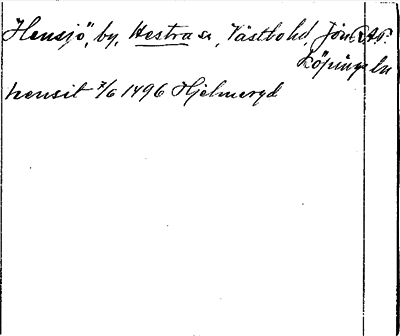 Hensjö, by, Hestra sn, Västbo hd, Jön-
köpings ln
hensit 7/6 1496 Hjelmeryd